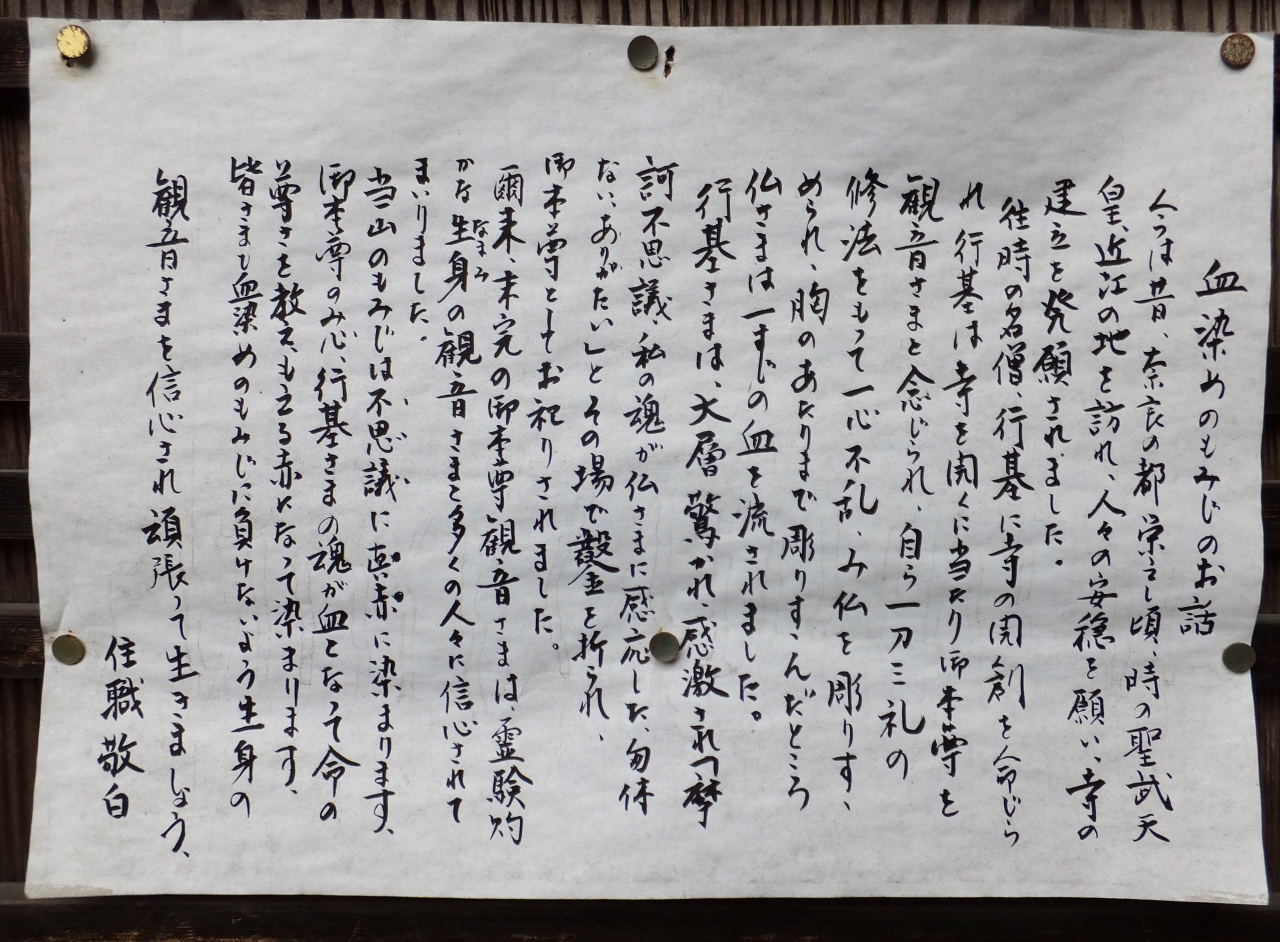 血染めのもみじのお話
今は昔、奈良の都栄えし頃、時の聖武天
皇、近江の地を訪れ、人々の安穏を願い、寺の
建立を発願されました。
往時の名僧、行基に寺の開創を命じら
れ行基は寺を開くに当たり御本尊を
観音さまと念じられ、自ら一刀三礼の
修法をもって一心不乱、み仏を彫りすゝ
められ、胸のあたりまで彫りすゝんだところ
仏さまは一すじの血を流されました。
行基さまは、大層驚かれ、感激され「摩
訶不思議、私の魂が仏さまに感応した、勿体
ない、ありがたい」とその場で鑿を折られ、
御本尊としてお祀りされました。
爾来、未完の御本尊観音さまは、霊験灼
かな生身の観音さまと多くの人々に信心されて
なまみ
まいりました。
当山のもみじは不思議に真赤に染まります、
御本尊のみ心、行基さまの魂が血となって命の
尊さを教え、もえる赤になって染まります、
皆さまも血染めのもみじに負けないよう生身の
観音さまを信心され頑張って生きましょう、
住職敬白